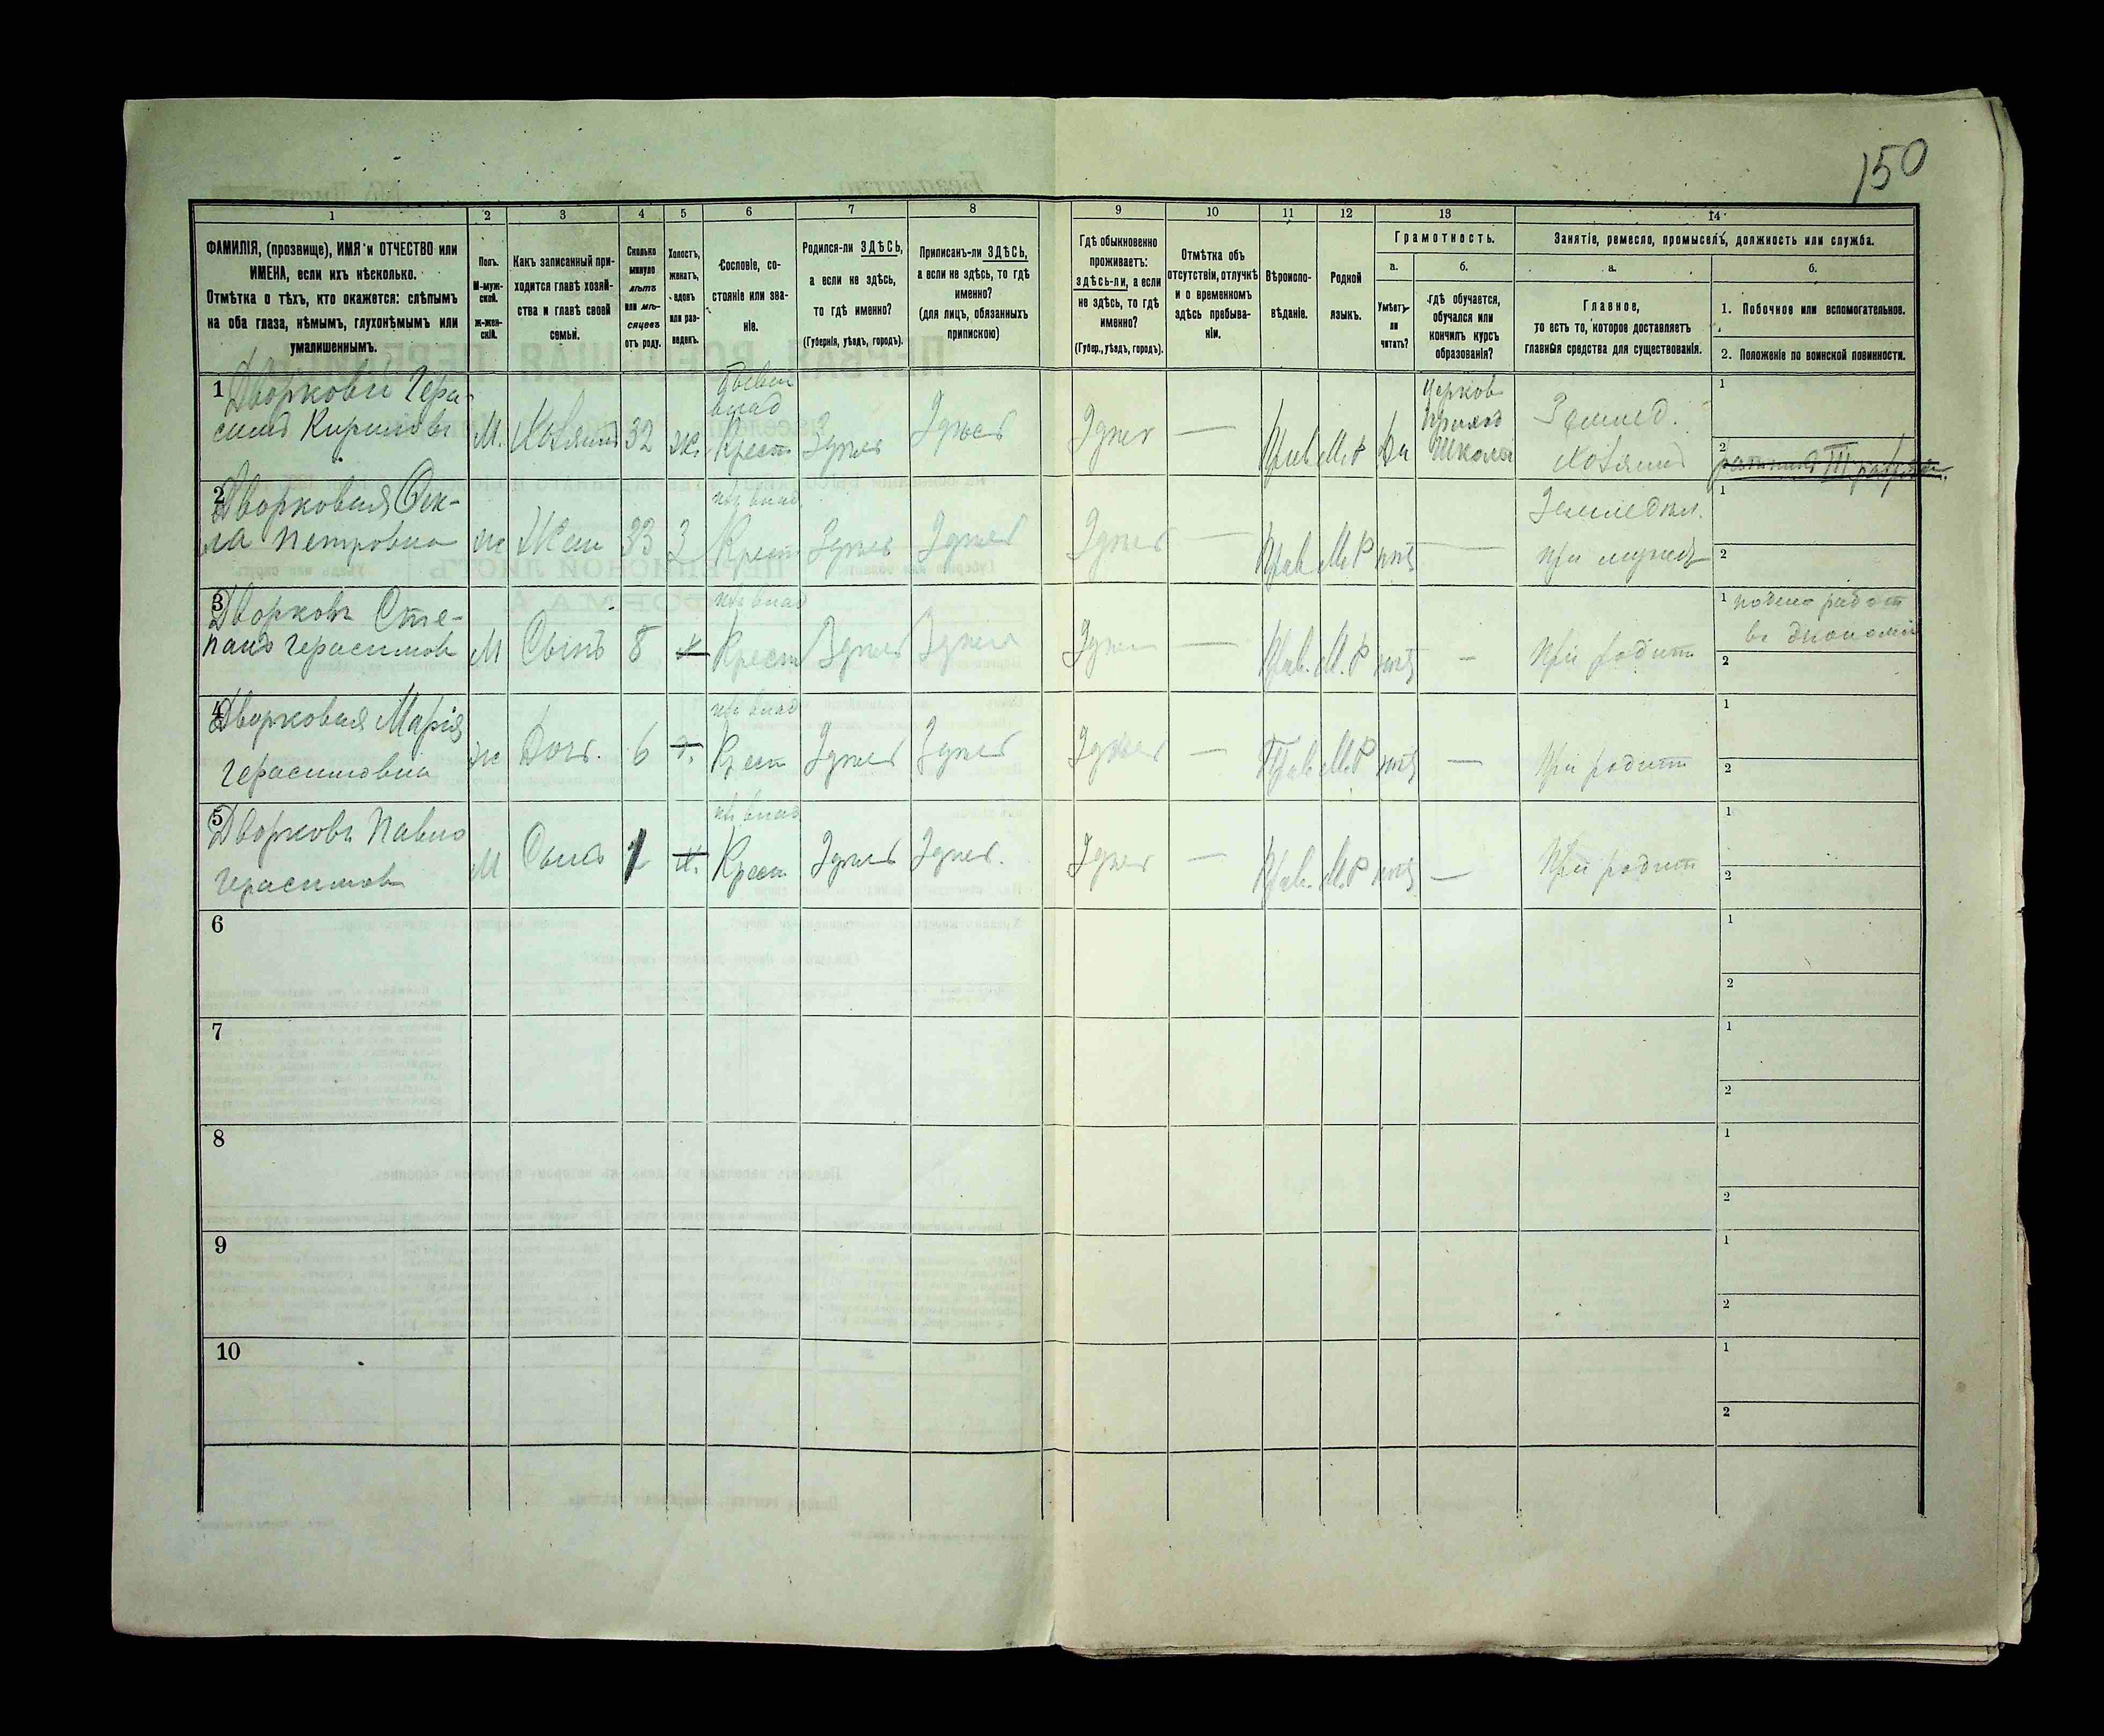 150
1 2 3 4 5 6 7 8 9 10 11 12 13 14
ФАМИЛІЯ, (прозвище), ИМЯ и ОТЧЕСТВО или
ИМЕНА, если ихъ нѣсколько.
Отмѣтка о тѣхъ, кто окажется: слѣпымъ
на оба глаза, нѣмымъ, глухонѣмымъ или
умалишеннымъ.
Полъ.
М-муж-
ской.
Ж-жен-
скій.
Какъ записанный при-
ходится главѣ хозяй-
ства и главѣ своей
семьи.
Сколько
минуло
лѣтъ
или мѣ-
сяцевъ
отъ роду.
Холостъ,
женатъ,
вдовъ
или раз-
веденъ.
Сословіе, со-
стояніе или зва-
ніе.
Родился-ли ЗДѢСЬ,
а если не здѣсь,
то гдѣ именно?
(Губернія, уѣздъ, городъ).
Приписанъ-ли ЗДѢСЬ,
а если не здѣсь, то гдѣ
именно?
(для лицъ, обязанныхъ
припискою)
Гдѣ обыкновенно
проживаетъ:
здѣсь-ли, а если
не здѣсь, то гдѣ
именно?
(Губер., уѣздъ, городъ).
Отмѣтка объ
отсутствіи, отлучкѣ
и о временномъ
здѣсь пребыва-
ніи.
Вѣроиспо-
вѣданіе.
Родной
языкъ.
Грамотность.
а.
Умѣетъ
ли
читать?
б.
гдѣ обучается,
обучался или
кончилъ курсъ
образованія?
Занятіе, ремесло, промыселъ, должность или служба.
а.
Главное,
то есть то, которое доставляетъ
главныя средства для существованія.
б.
1. Побочное или вспомогательное.
2. Положеніе по воинской повинности.
1 Дворковъ Гера-
симъ Кириловъ М. Хозяинъ 32 ж. Крест Здѣсь Здѣсь Здѣсь — Прав М.Р да
Школы
Землед.
Хозяинъ
1
2
2 Дворковая Фек-
ла Петровна ж Жена 33 З Крест Здѣсь Здѣсь Здѣсь — Прав М.Р нѣтъ —
Земледѣл.
при мужѣ
1
2
3 Дворковъ Сте-
панъ Герасимовъ М Сынъ 8 Крест Здѣсь Здѣсь Здѣсь — Прав. М.Р нѣтъ — При родит
1
2
4 Дворковая Марія
Герасимовна ж Дочь. 6 Крест Здѣсь Здѣсь Здѣсь — Прав. М.Р нѣтъ — При родит
1
2
5 Дворковъ Павло
Герасимовъ М Сынъ 1 Крест Здѣсь Здѣсь. Здѣсь — Прав. М.Р нѣтъ — При родит
1
2
6
1
2
7
1
2
8
1
2
9
1
2
10
1
2